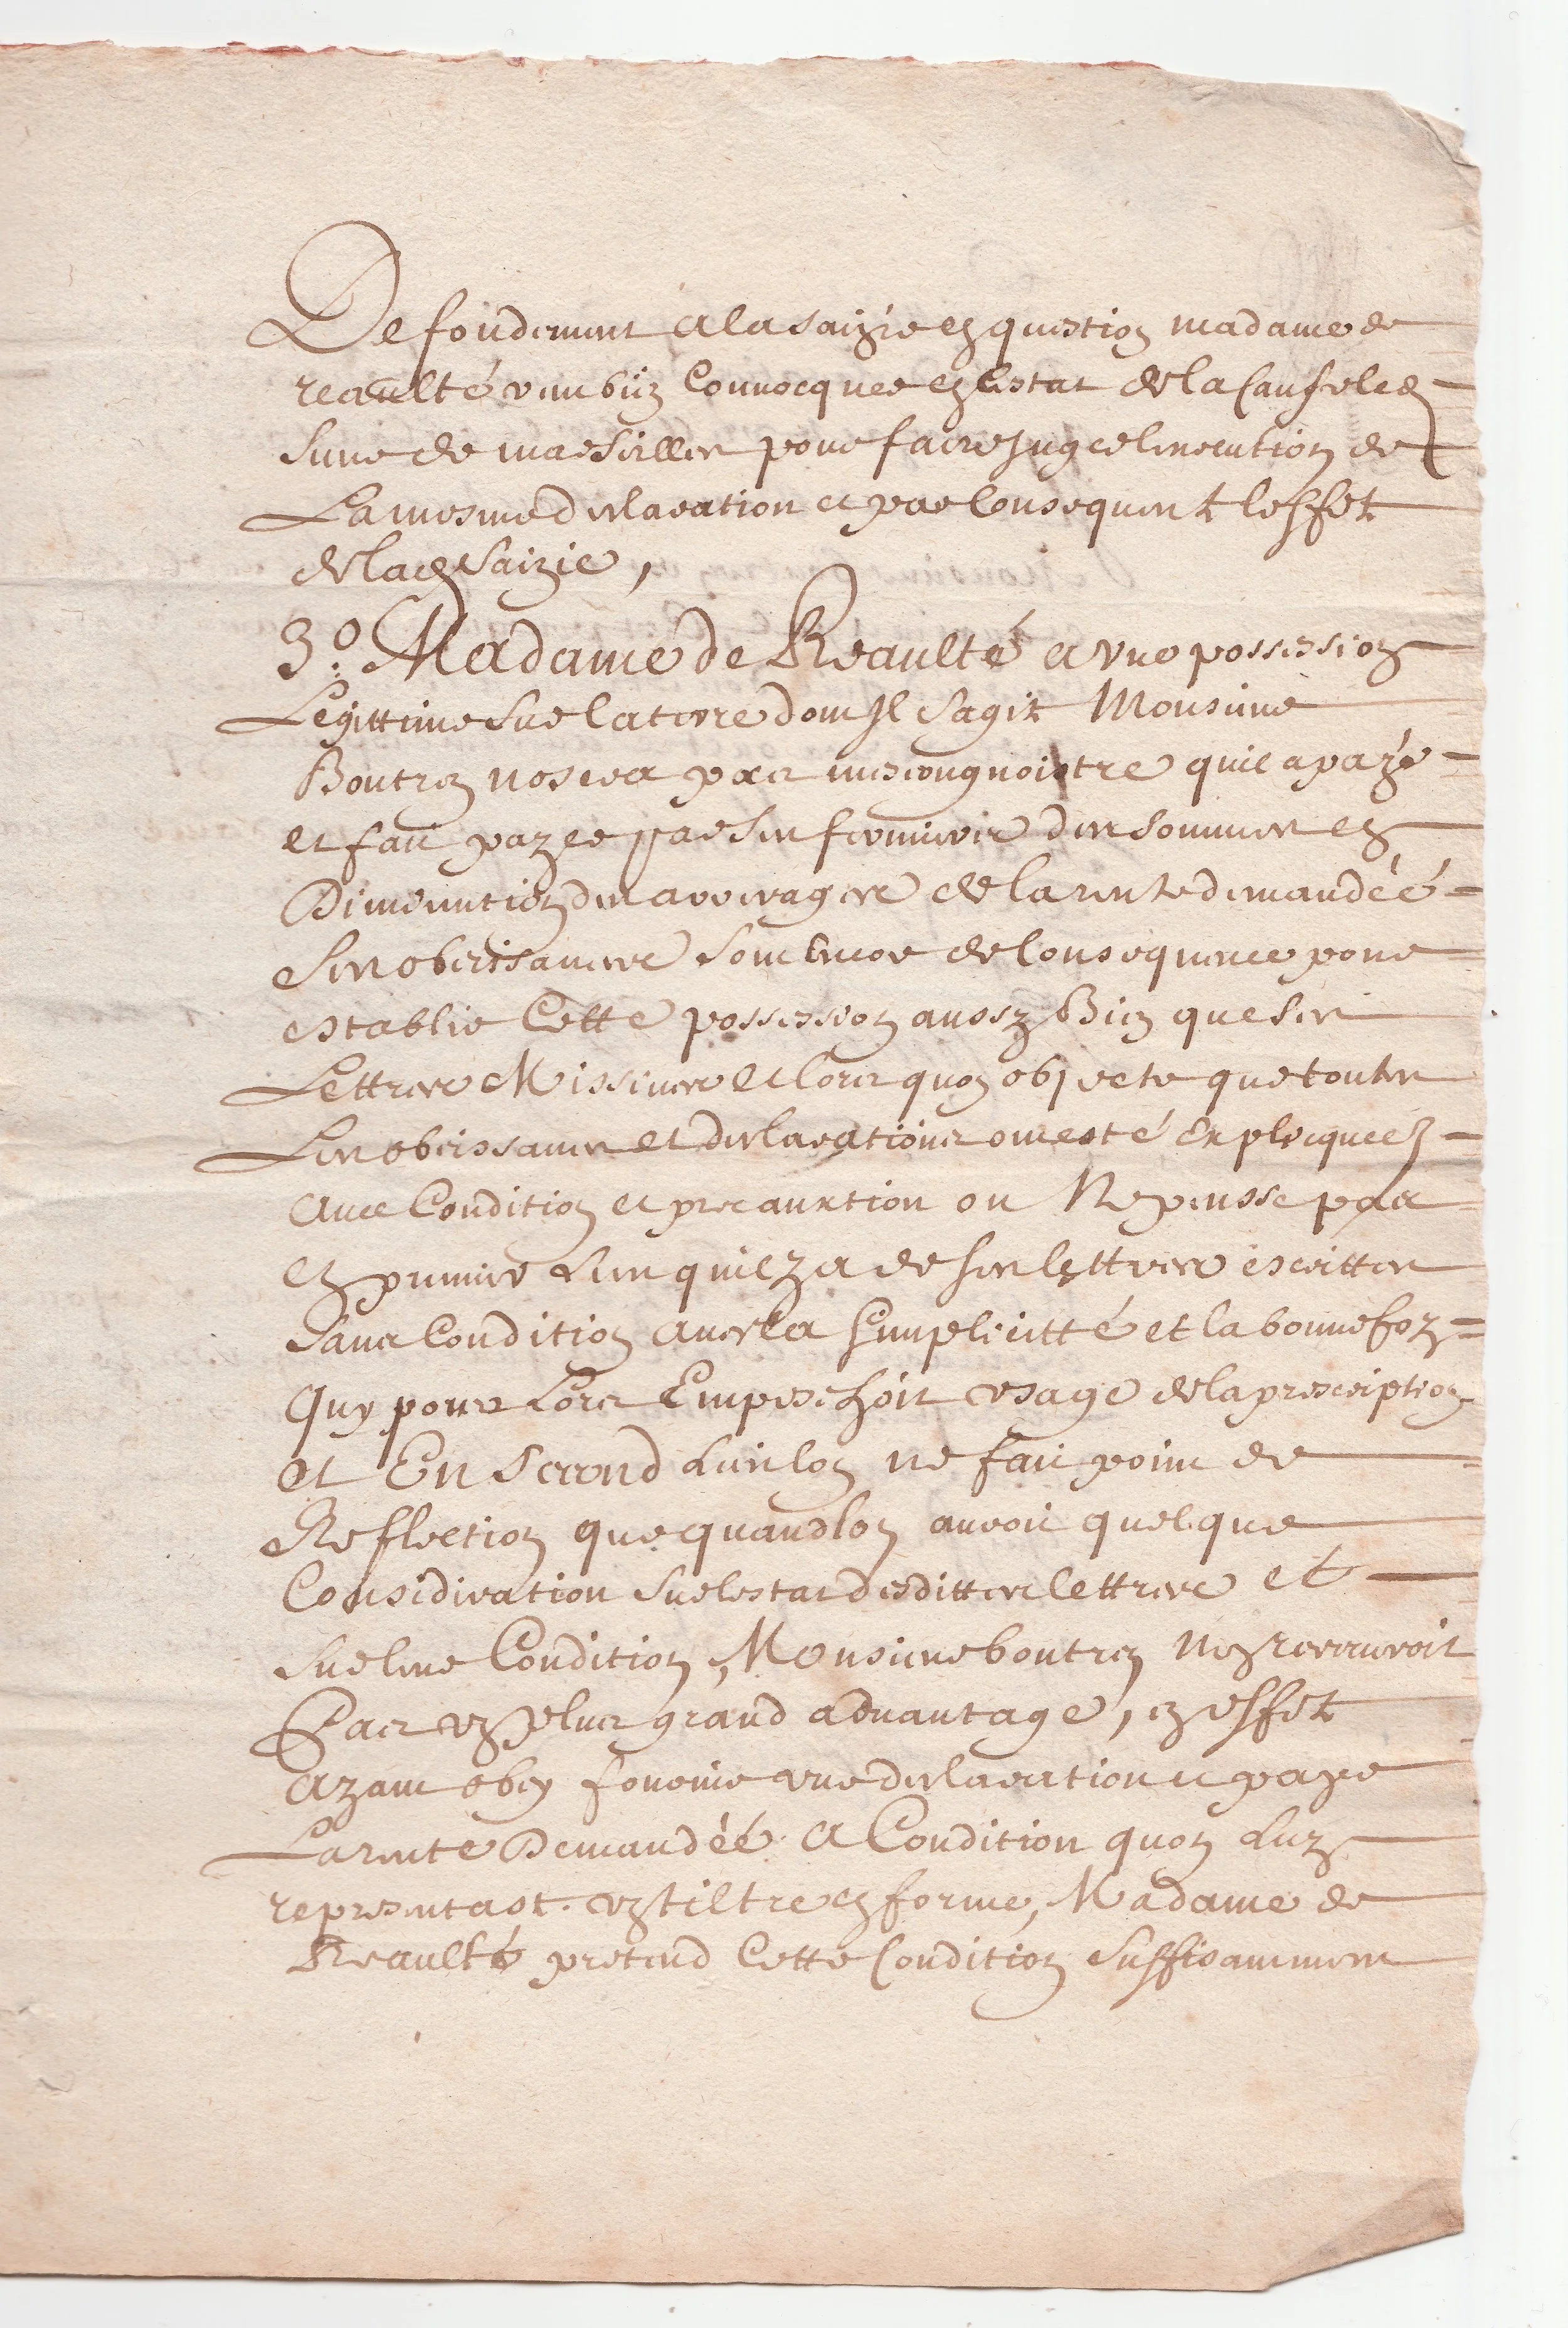 De fondement a la saizie en question madame de
reaulté veut bien Convocquer en lestat de la Cause led
sieur de marsilles pour faire juger lexecution de
La mesme declaration et par Consequent leffet
de lad saizie,
3o. Madame de Reaulté a une possession
Legittime sur la terre dont Il sagit Monsieur
Boutren nosera pas mescongnoistre quil a payé
et fait payer par ses fermiers des sommes en
Diminution des arrerages de la rente demandéé
Ses obeissances sont encor de Consequence pour
establir Cette possession aussy Bien que ses
Lettres Missives et lors quon objecte que toutes
Les obeissances et declarations ont esté Explicqueés
avec Condition et precauxtion on Ne pense pas
en premier lieu quil y a de ses lettres escrittes
sans Condition avec la simplicitté et la bonne foy
Quy pour Lors Empeschoit usage de la prescription
et En Second Lieu lon ne fait point de
Reflection que quand lon auroit quelque
Consideration sur lestat desdittes lettres et
sur leur Condition, Monsieur boutren Nen recevroit
Pas un plus grand advantage, en effet
ayant obey fournir une declaration et payer
La rente Demandéé A Condition quon Luy
representast un tiltre en forme, Madame de
Reaulté pretend Cette Condition suffisamment